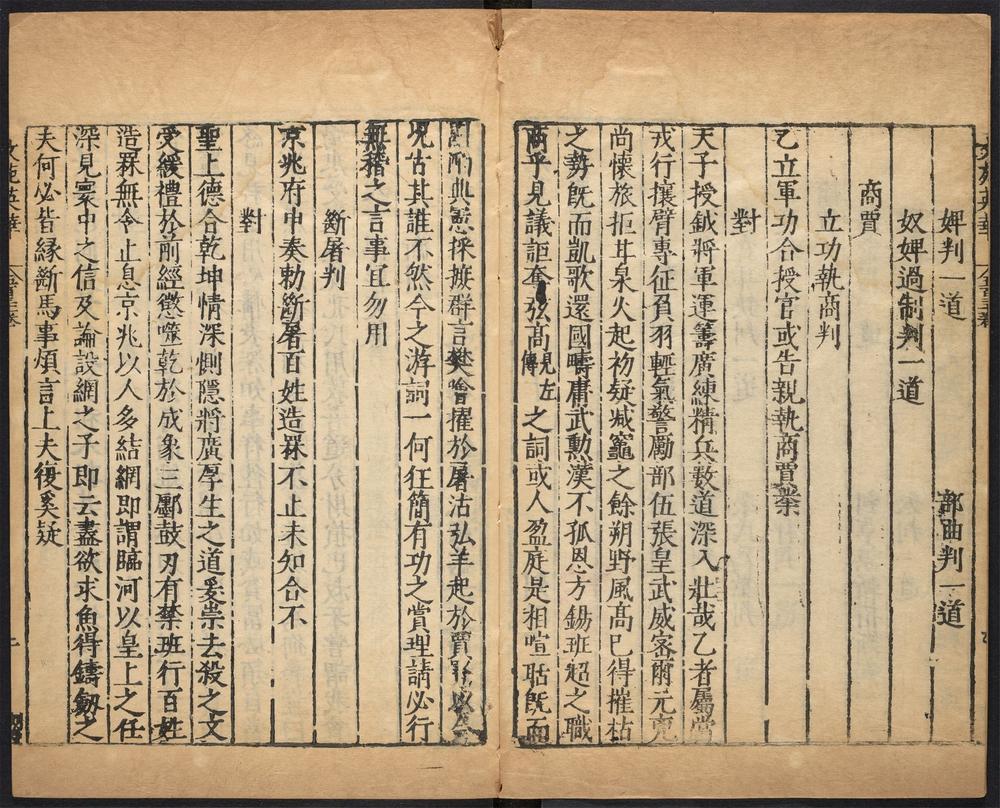 婢判一道 部曲判一道
奴婢過制判一道
商賈
立功執商判
乙立軍功合授官或告親執商賈業
對
天子授鉞將軍運籌廣練精兵數道深入壯哉乙者屬當
戎行攘臂專征負羽輕氣警勵部伍張皇武威客爾元兇
尚懷旅拒甘泉火起初疑減竈之餘朔野風髙已得摧枯
之勢旣而凱歌還國疇庸武勲漢不孤恩方錫班超之職
商乎見議詎奪弦髙見左傳之詞或人盈庭是相喧聒旣而
酌典憲採摭群言樊噲擢於屠沽弘羊起於賈豎
況古其誰不然今之游詞一何狂簡有功之賞理請必行
無稽之言事宜勿用
斷屠判
京兆府申奏勅斷屠百姓造罧不止未知合不
對
聖上德合乾坤情深惻隱將廣厚生之道爰崇去殺之文
受緩禮於前經懲噬乾於成象三鄽鼓刃有禁班行百姓
造罧無令止息京兆以人多結網即謂臨河以皇上之任
深見寰中之信及論設網之子即云盡欲求魚得鑄劔之
夫何必皆緣斷馬事煩言上夫復奚疑
文苑英華